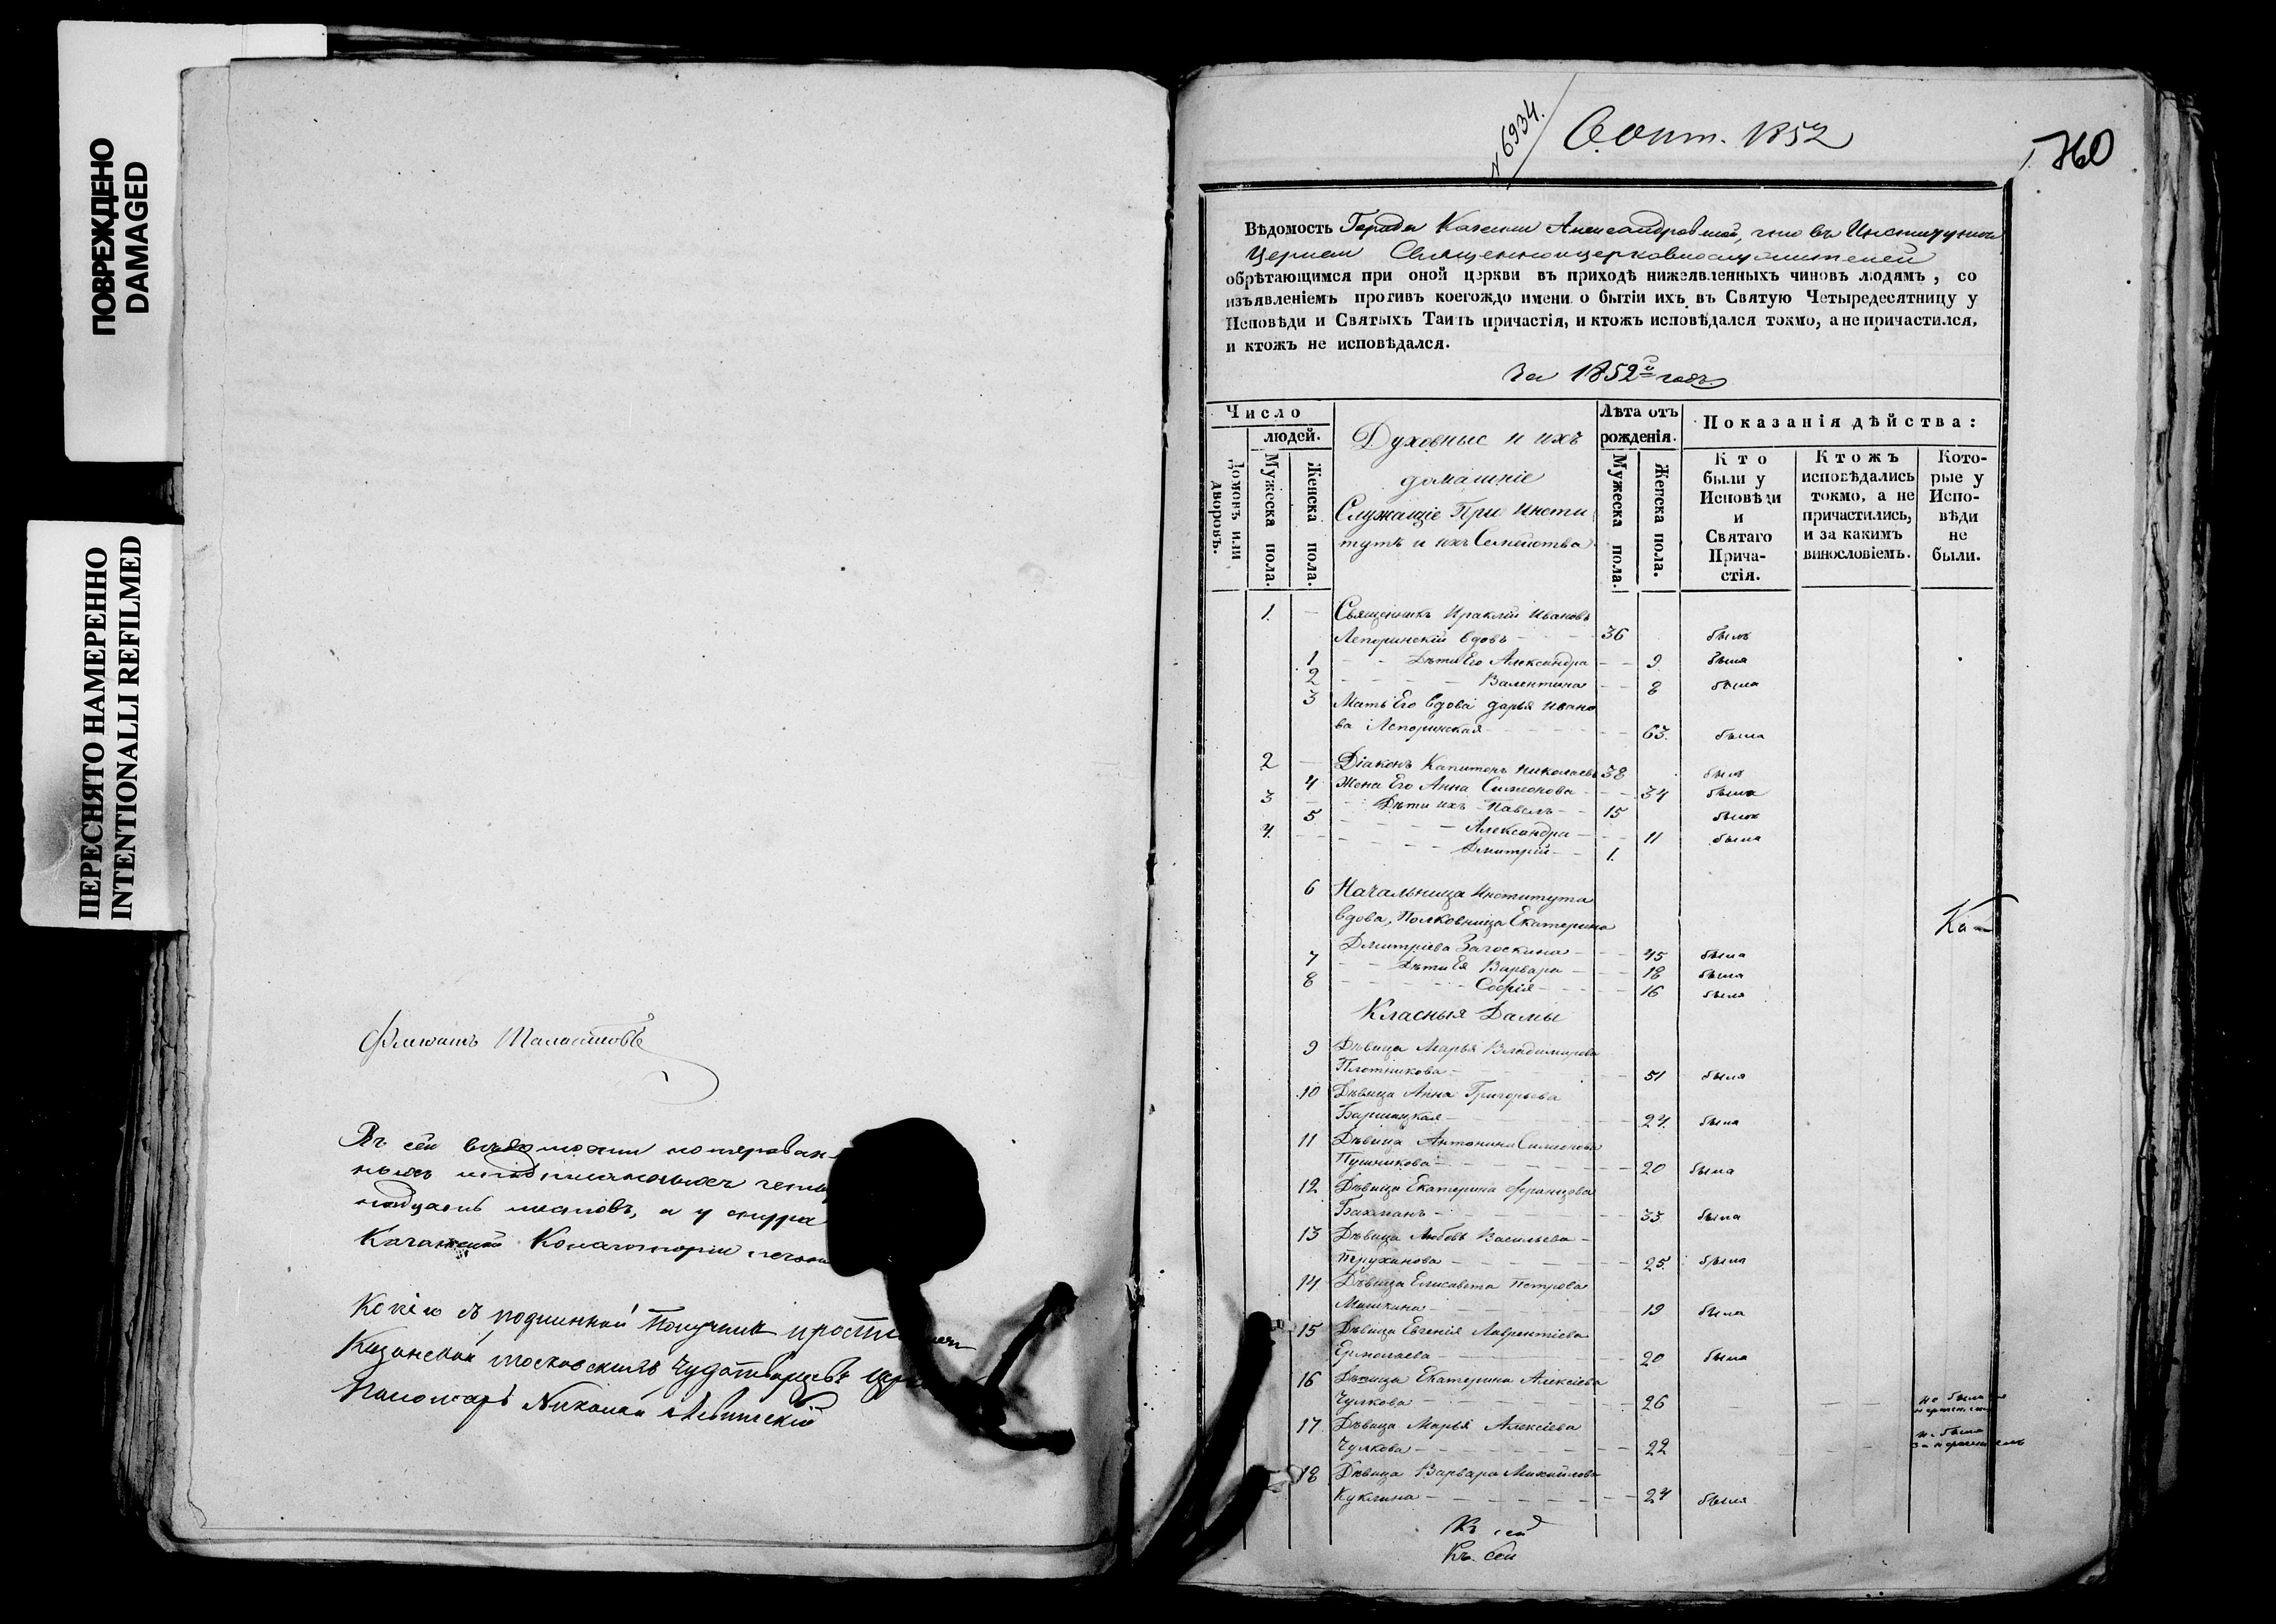 ПОВРЕЖДЕНО
DAMAGED
ПЕРЕСНЯТО НАМЕРЕННО
INTENTIONALLI REFILMED
Въ сей вѣдомости нотерован-
надцать листовъ, а у снура
Казанской Консистории печать
Копію съ подлинной получилъ
Казанской Московскихъ Чудотворцевъ
Пономарь Николай
№ 6934.
1852
760
Вѣдомость Города Казани Александровской, что въ Институтѣ
Церкви Священноцерковнослужителей
обрѣтающимся при оной церкви въ приходѣ нижеявленныхъ чиновъ людямъ, со
изъявленіемъ противъ коегождо имени о бытіи ихъ въ Святую Четыредесятницу у
Исповѣди и Святыхъ Таинъ причастія, и ктожъ исповѣдался токмо, а не причастился,
и ктожъ не исповѣдался.
За 1852й годъ
Число
людей.
Домовъ или дворовъ.
Мужеска пола.
Женска пола.
Духовные и ихъ
домашніе
Служащіе При Инсти
тутѣ и ихъ Семейства
Лѣта отъ
рожденія.
Мужеска пола.
Женска пола.
Показанія дѣйства:
Кто
были у
Исповѣди
и
Святаго
Прича-
стія.
Ктожъ
исповѣдались
токмо, а не
причастились,
и за какимъ
винословіемъ.
Кото-
рые у
Испо-
вѣди
не
были.
1. — Священникъ Ираклій Ивановъ
Лепоринскій вдовъ 36 былъ
1 Дѣти Его Александра 9 была
2 Валентина 8 была
3 Мать Его вдова Дарья Ивано
ва Лепоринская 63. была
2 — Діаконъ Капитонъ Николаевъ 38 былъ
4 Жена Его Анна Симеонова 34 была
3 Дѣти ихъ Павелъ 15 былъ
5 Александра 11 была
4. Дмитрій 1.
6 Начальница Института
вдова, Полковница Екатерина
Дмитріева Загоскина 45 была
7 Дѣти Ея Варвара 18 была
8 Софія 16 была
Класныя Дамы
9 Дѣвица Марья Владимирова
Плотникова 51 была
10 Дѣвица Анна Григорьева
24. была
11 Дѣвица Антонина Симеонова
Пушникова 20 была
12 Дѣвица Екатерина Францова
Бахманъ 33 была
13 Дѣвица Любовь Васильева
Труханова 25. была
14 Дѣвица Елисавета Петрова
Мамкина 19 была
15 Дѣвица Евгенія Лаврентіева
Ермолаева 20 была
16 Дѣвица Екатерина Алексіева
Чулкова 26 не была
17 Дѣвица Марья Алексіева
Чулкова 22 не была
18 Дѣвица Варвара Михайлова
Куклина 24 была
Къ сей
Къ сей